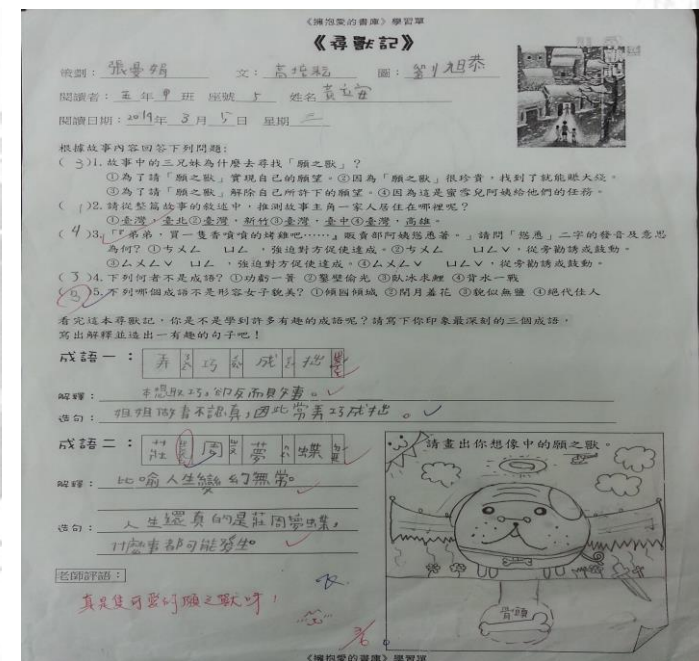 《擁抱愛的書庫》學習單
《尋獸記》
策劃：張曼娟 文：高培耘 圖：劉旭恭
閱讀者：五年甲班 座號 5 姓名 黃
閱讀日期：2014年 3月 5日 星期 三
根據故事內容回答下列問題：
(3)1.故事中的三兄妹為什麼去尋找「願之獸」？
①為了請「願之獸」實現自己的願望。②因為「願之獸」很珍貴，找到了就能賺大錢。
③為了請「願之獸」解除自己所許下的願望。④因為這是蜜雪兒阿姨給他們的任務。
(1)2.請從整篇故事的敘述中，推測故事主角一家人居住在哪裡呢？
①臺灣，臺北②臺灣，新竹③臺灣，臺中④臺灣，高雄。
(4)3.「『弟弟，買一隻香噴噴的烤雞吧……』販賣部阿姨慫恿著。」請問「慫恿」二字的發音及意思
為何？①ㄘㄨㄥ ㄩㄥ，強迫對方促使達成。②ㄘㄨㄥ ㄩㄥˇ，從旁勸誘或鼓動。
③ㄙㄨㄥˇ ㄩㄥ，強迫對方促使達成。④ㄙㄨㄥˇ ㄩㄥˇ，從旁勸誘或鼓動。
(3)4.下列何者不是成語？①功虧一簣 ②鑿壁偷光 ③臥冰求鯉 ④背水一戰
(3)5.下列哪個成語不是形容女子貌美？①傾國傾城 ②閉月羞花 ③貌似無鹽 ④絕代佳人
看完這本尋獸記，你是不是學到許多有趣的成語呢？請寫下你印象最深刻的三個成語，
寫出解釋並造出一有趣的句子吧！
成語一：弄巧成拙
解釋：本想取巧，卻反而具事。
造句：姐姐做事不認真，因此常弄巧成拙。
成語二：莊周夢蝶
解釋：比喻人生變幻無常。
造句：人生還真的是莊周夢蝶，
什麼事都可能發生。
請畫出你想像中的願之獸。
骨頭
老師評語：
真是隻可愛的願之獸呀！
3/6
《擁抱愛的書庫》學習單